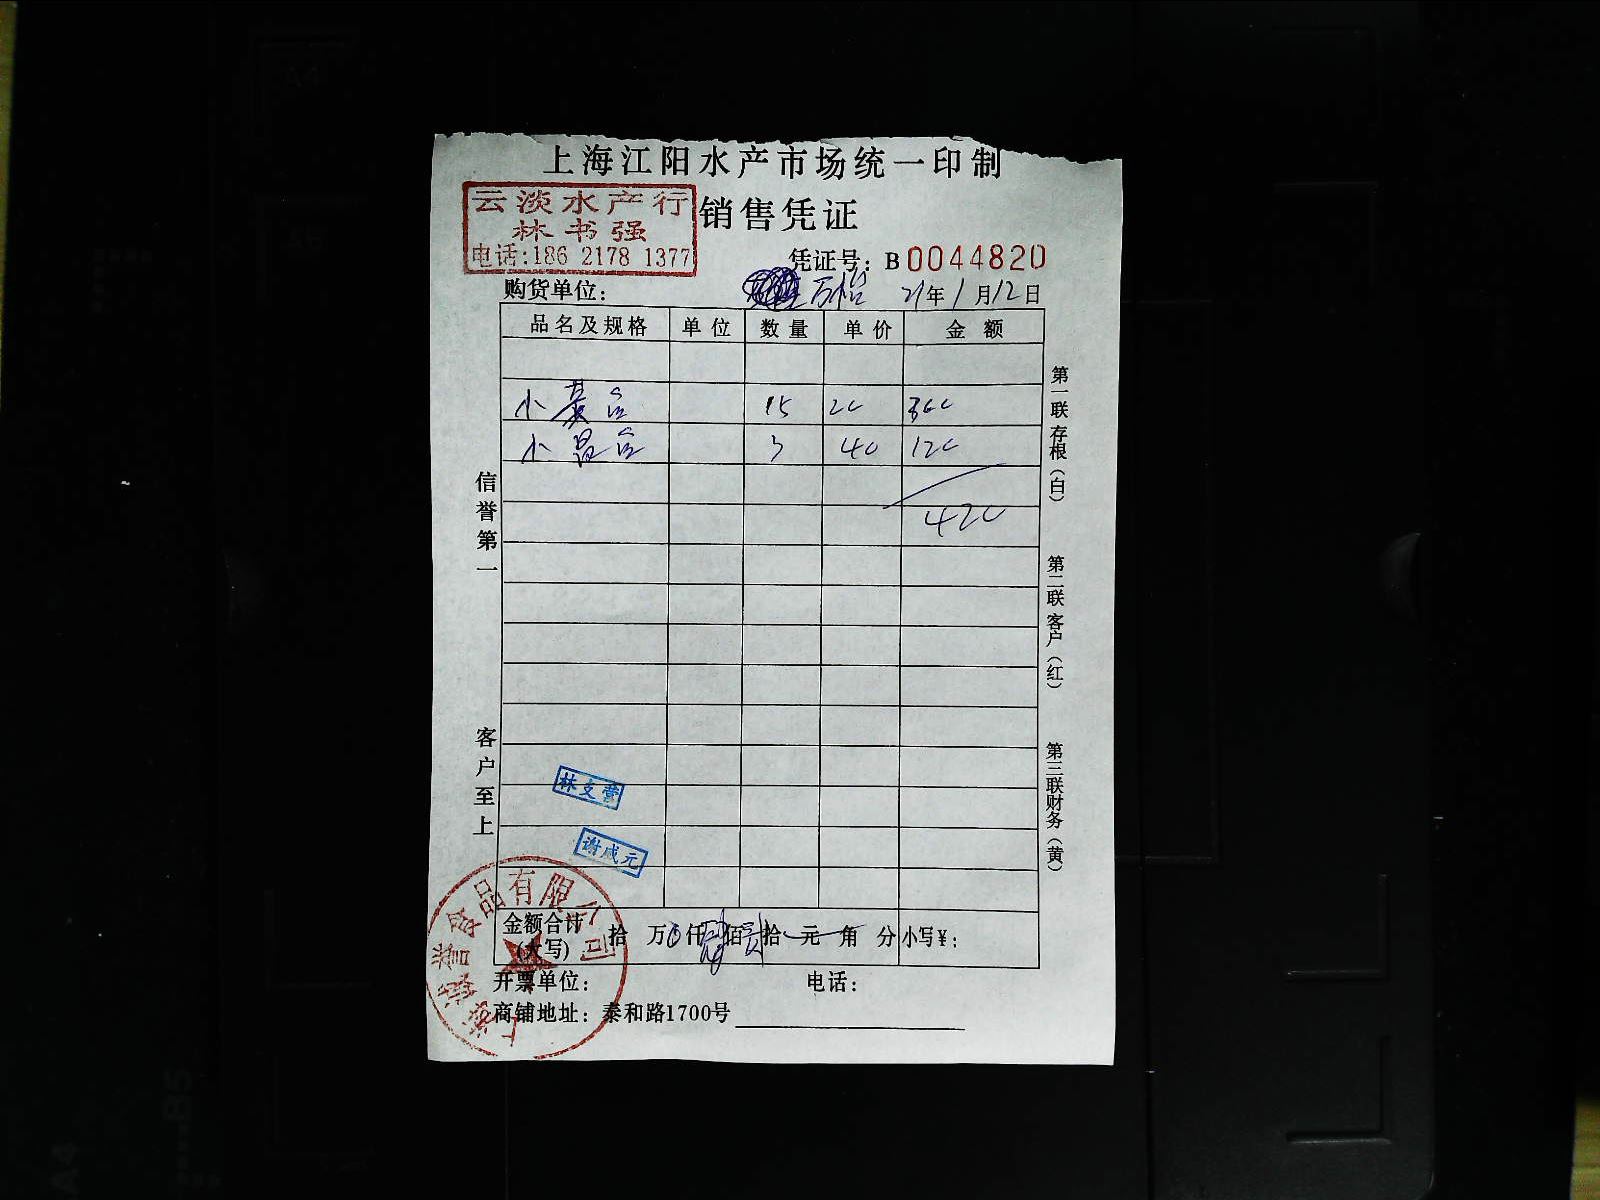 上海江阳水产市场统一印制
云淡水产行
林书强
电话:186 2178 1377
销售凭证
凭证号: B 0044820
购货单位: 万怡 21年1月12日
品名及规格 单位 数量 单价 金额
15 20 300
3 40 120
420
信誉第一
客户至上
第一联 存根(白)
第二联 客户(红)
第三联 财务(黄)
林支营
谢成元
金额合计(大写) 拾 万 0 仟 肆 佰 贰 拾 元 角 分 小写¥:
开票单位: 电话:
商铺地址: 泰和路1700号
食品有限公司